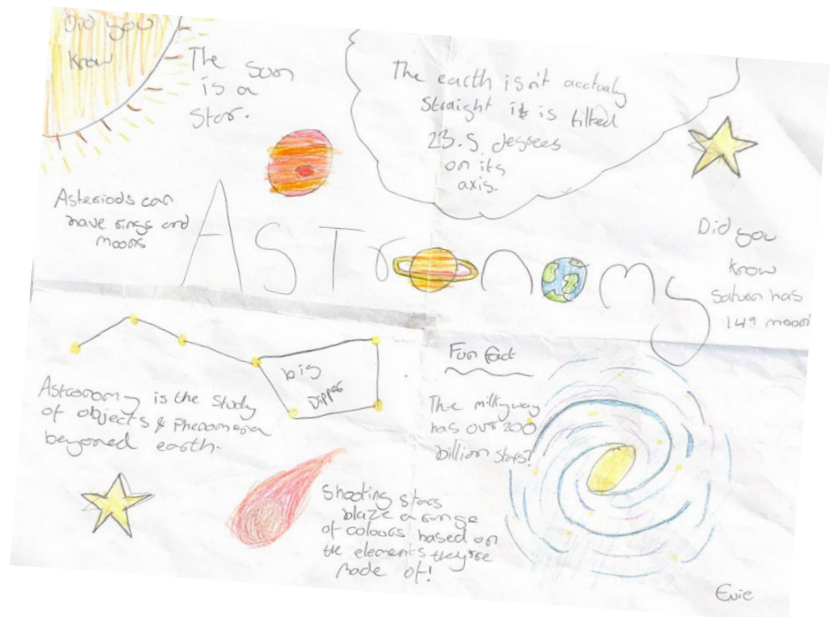 Did you
know
The sun
is a
Star.
The earth isn't acctualy
straight it is tilted
23.5 degrees
on its
axis.
Asteriods can
have rings and
moons
ASTronomy
Did you
know
Saturn has
149 moons
big
Dipper
Astronomy is the study
of objects & Phenomena
beyoned earth.
Fun fact
The milkyway
has over 200
billion stars!
Shooting stars
blaze a range
of colours based on
the elements they're
made of!
Evie